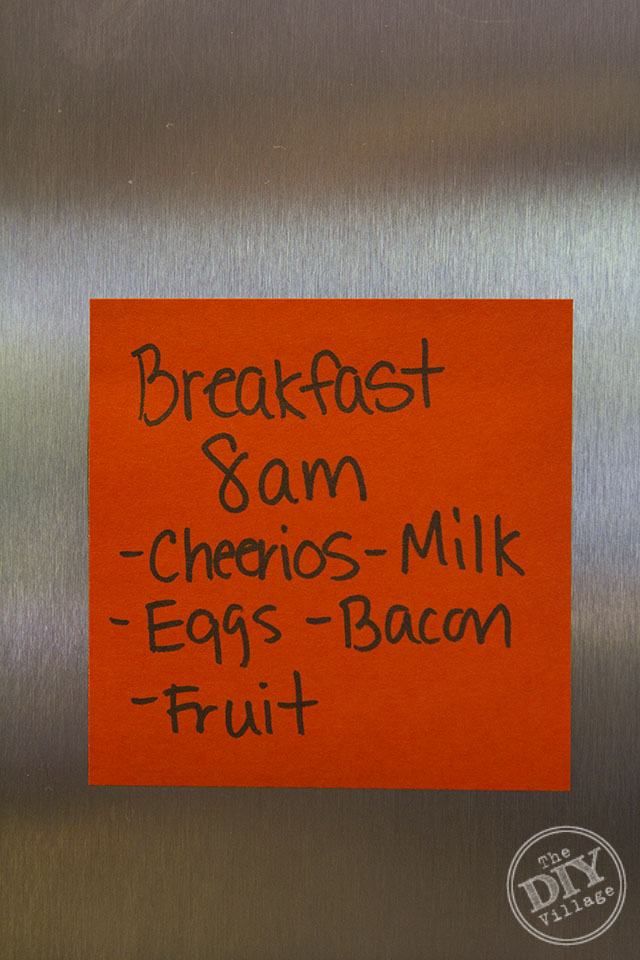 Breakfast
8am
-Cheerios-Milk
-Eggs -Bacon
-Fruit
The
DIY
Village